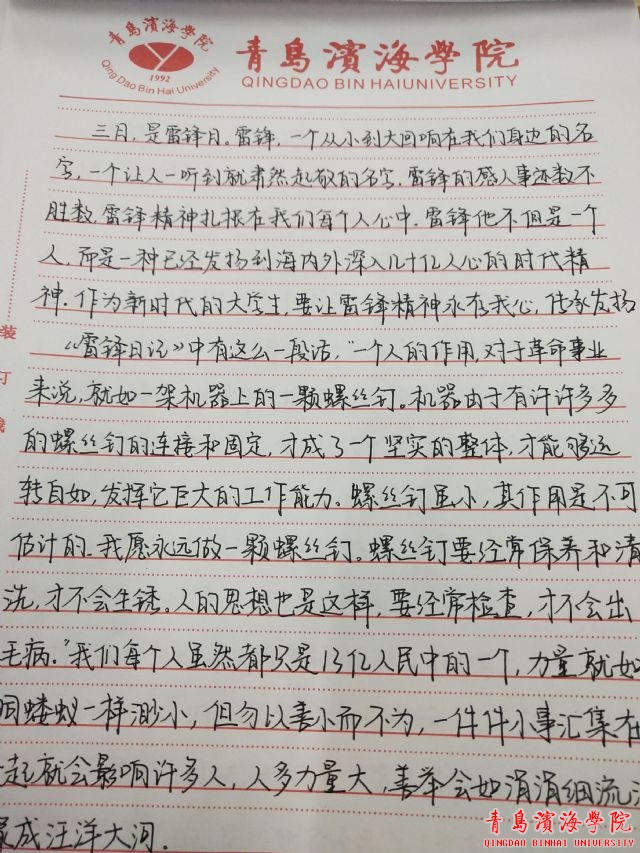 青島濱海學院
Qing Dao Bin Hai University
1992
青島濱海學院
QINGDAO BIN HAI UNIVERSITY
三月,是雷锋月。雷锋,一个从小到大回响在我们身边的名
字,一个让人一听到就肃然起敬的名字.雷锋的感人事迹数不
胜数.雷锋精神扎根在我们每个人心中.雷锋他不但是一个
人.而是一种已经发扬到海内外深入几十亿人心的时代精
神.作为新时代的大学生,要让雷锋精神永存我心,传承发扬
《雷锋日记》中有这么一段话,"一个人的作用,对于革命事业
来说,就如一架机器上的一颗螺丝钉。机器由于有许许多多
的螺丝钉的连接和固定,才成了一个坚实的整体,才能够运
转自如,发挥它巨大的工作能力。螺丝钉虽小,其作用是不可
估计的.我愿永远做一颗螺丝钉。螺丝钉要经常保养和清
洗,才不会生锈。人的思想也是这样,要经常检查,才不会出
毛病."我们每个人虽然都只是13亿人民中的一个,力量就如
同蝼蚁一样渺小,但勿以善小而不为,一件件小事汇集在
起就会影响许多人,人多力量大,善举会如涓涓细流
成汪洋大河.
装
订
青島濱海學院
QINGDAO BINHAI UNIVERSITY